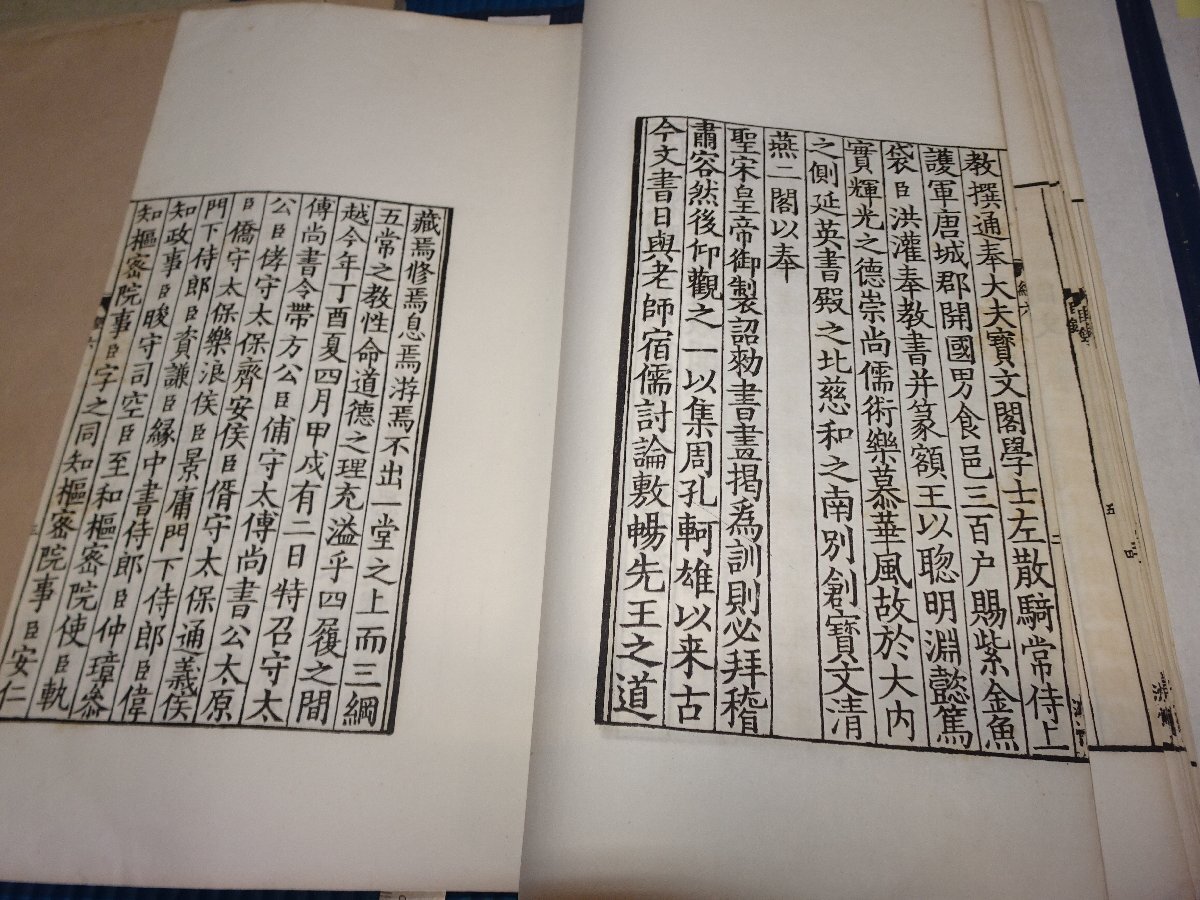 教撰通奉大夫寶文閣學士左散騎常侍上
護軍唐城郡開國男食邑三百户賜紫金魚
袋臣洪灌奉教書并篆額王以聰明淵懿篤
實輝光之德崇尚儒術樂慕華風故於大内
之側延英書殿之北慈和之南別創寶文清
燕二閣以奉
聖宋皇帝御製詔勑書畫揭爲訓則必拜稽
肅容然後仰觀之一以集周孔軻雄以来古
今文書日與老師宿儒討論敷暢先王之道
藏焉修焉息焉游焉不出一堂之上而三綱
五常之教性命道德之理充溢乎四履之間
越今年丁酉夏四月甲戌有二日特召守太
傅尚書令帶方公臣俌守太傅尚書公太原
公臣侾守太保齊安侯臣偦守太保通義侯
臣僑守太保樂浪侯臣景庸門下侍郎臣偉
門下侍郎臣資謙臣緣中書侍郎臣仲璋叅
知政事臣晙守司空臣至和樞密院使臣軌
知樞密院事臣字之同知樞密院事臣安仁